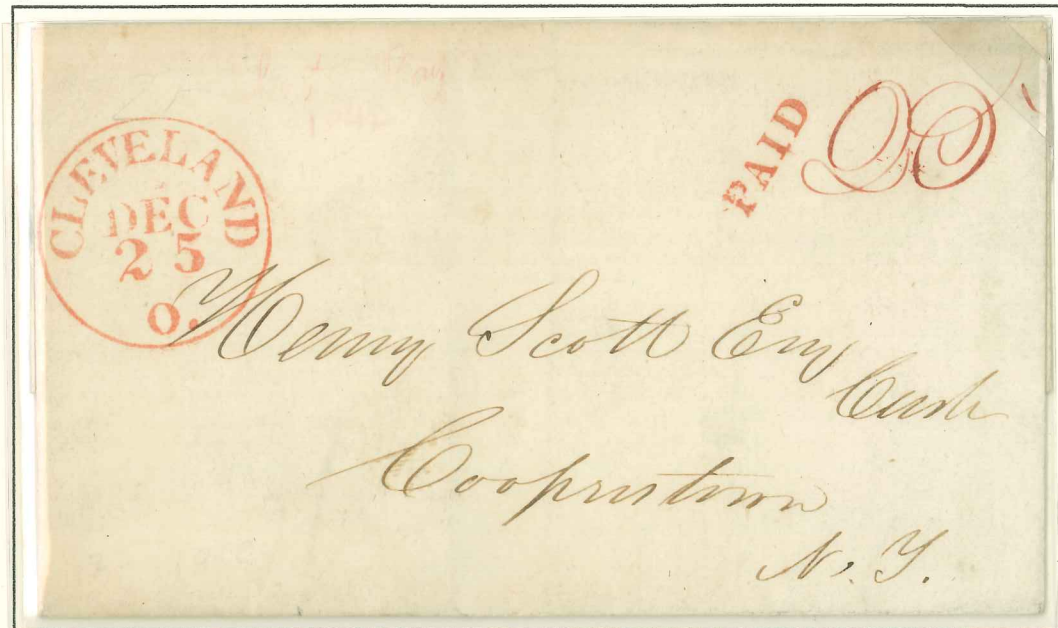 CLEVELAND
DEC
25
O.
PAID
Henry Scott Esq
Cash
Cooperstown
N. Y.